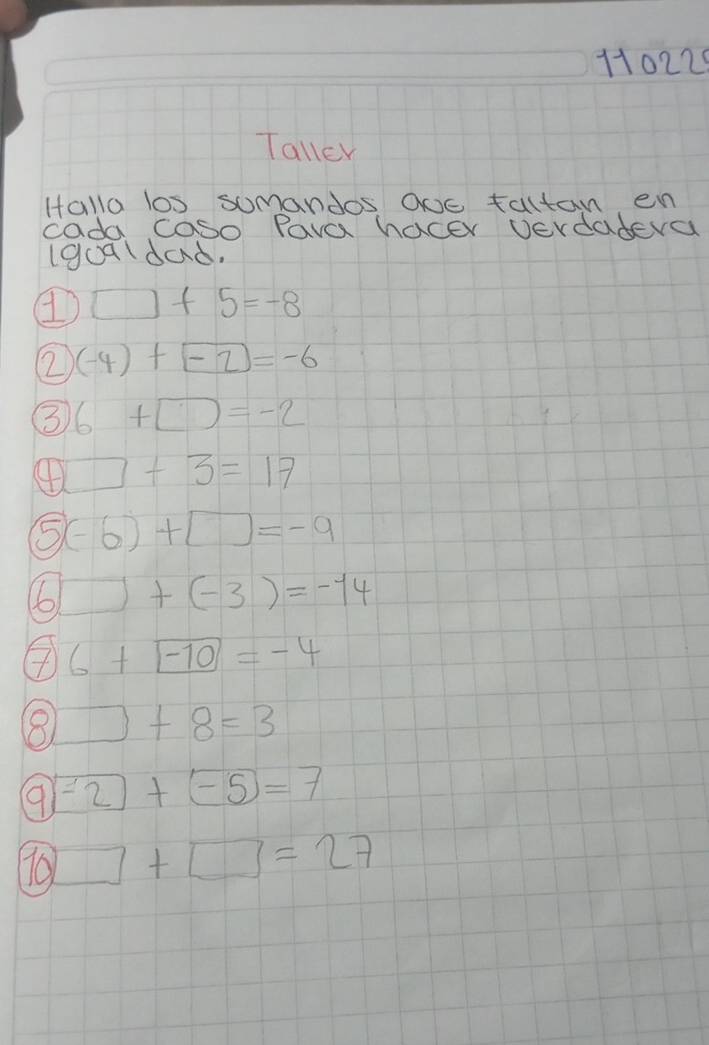 110225
Taller
Halla los sumandos que faltan en
cada caso Para hacer verdadera
igualdad.
① □ + 5 = -8
② (-4) + [-2] = -6
③ 6 + □ = -2
④ □ + 3 = 17
⑤ (-6) + □ = -9
⑥ □ + (-3) = -14
⑦ 6 + [-10] = -4
⑧ □ + 8 = 3
⑨ [-2] + [-5] = 7
⑩ □ + □ = 27